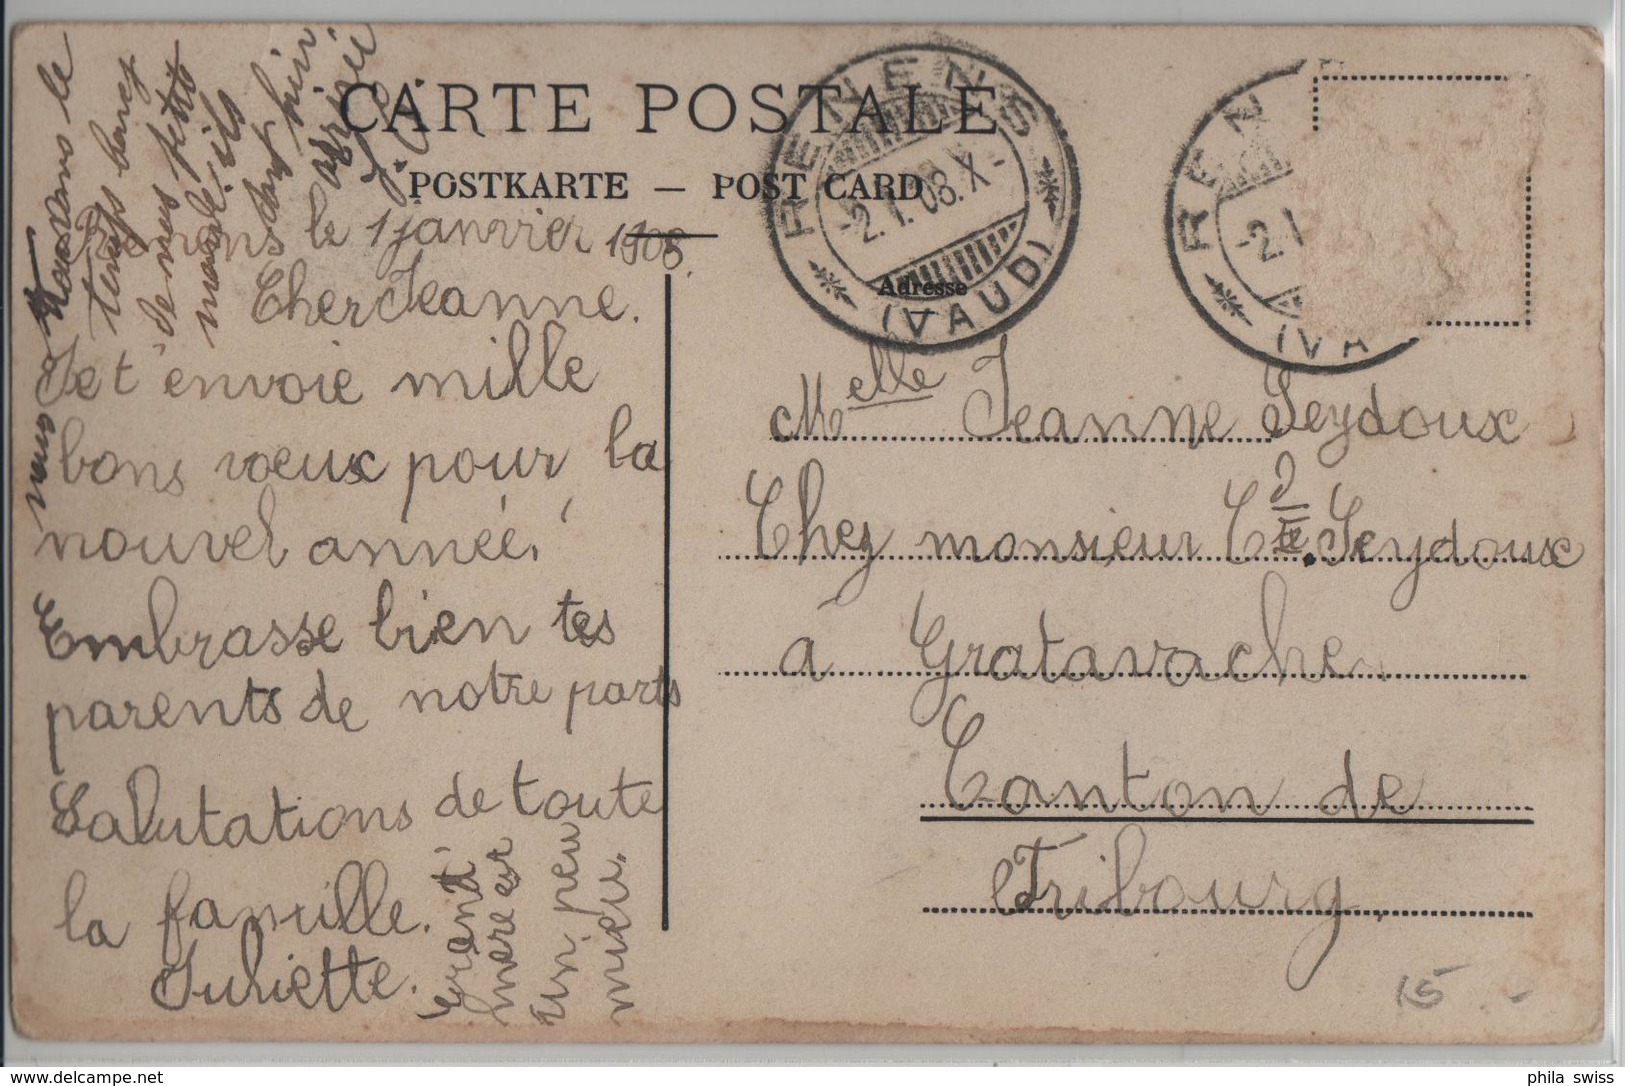 CARTE POSTALE
POSTKARTE — POST CARD
Adresse
RENENS
-2.1.08.X-
(VAUD)
REN
-2.1
(VA
Renens le 1 janvier 1908.
Cher Jeanne.
Je t'envoie mille
bons vœux pour la
nouvel année!
Embrasse bien tes
parents de notre parts
Salutations de toute
la famille.
Juliette.
Grand'
mere est
un peu
mieu.
Melle Jeanne Seydoux
Chez monsieur Seydoux
à Gratavache
Canton de
Fribourg.
15 -
phila swiss
www.delcampe.net